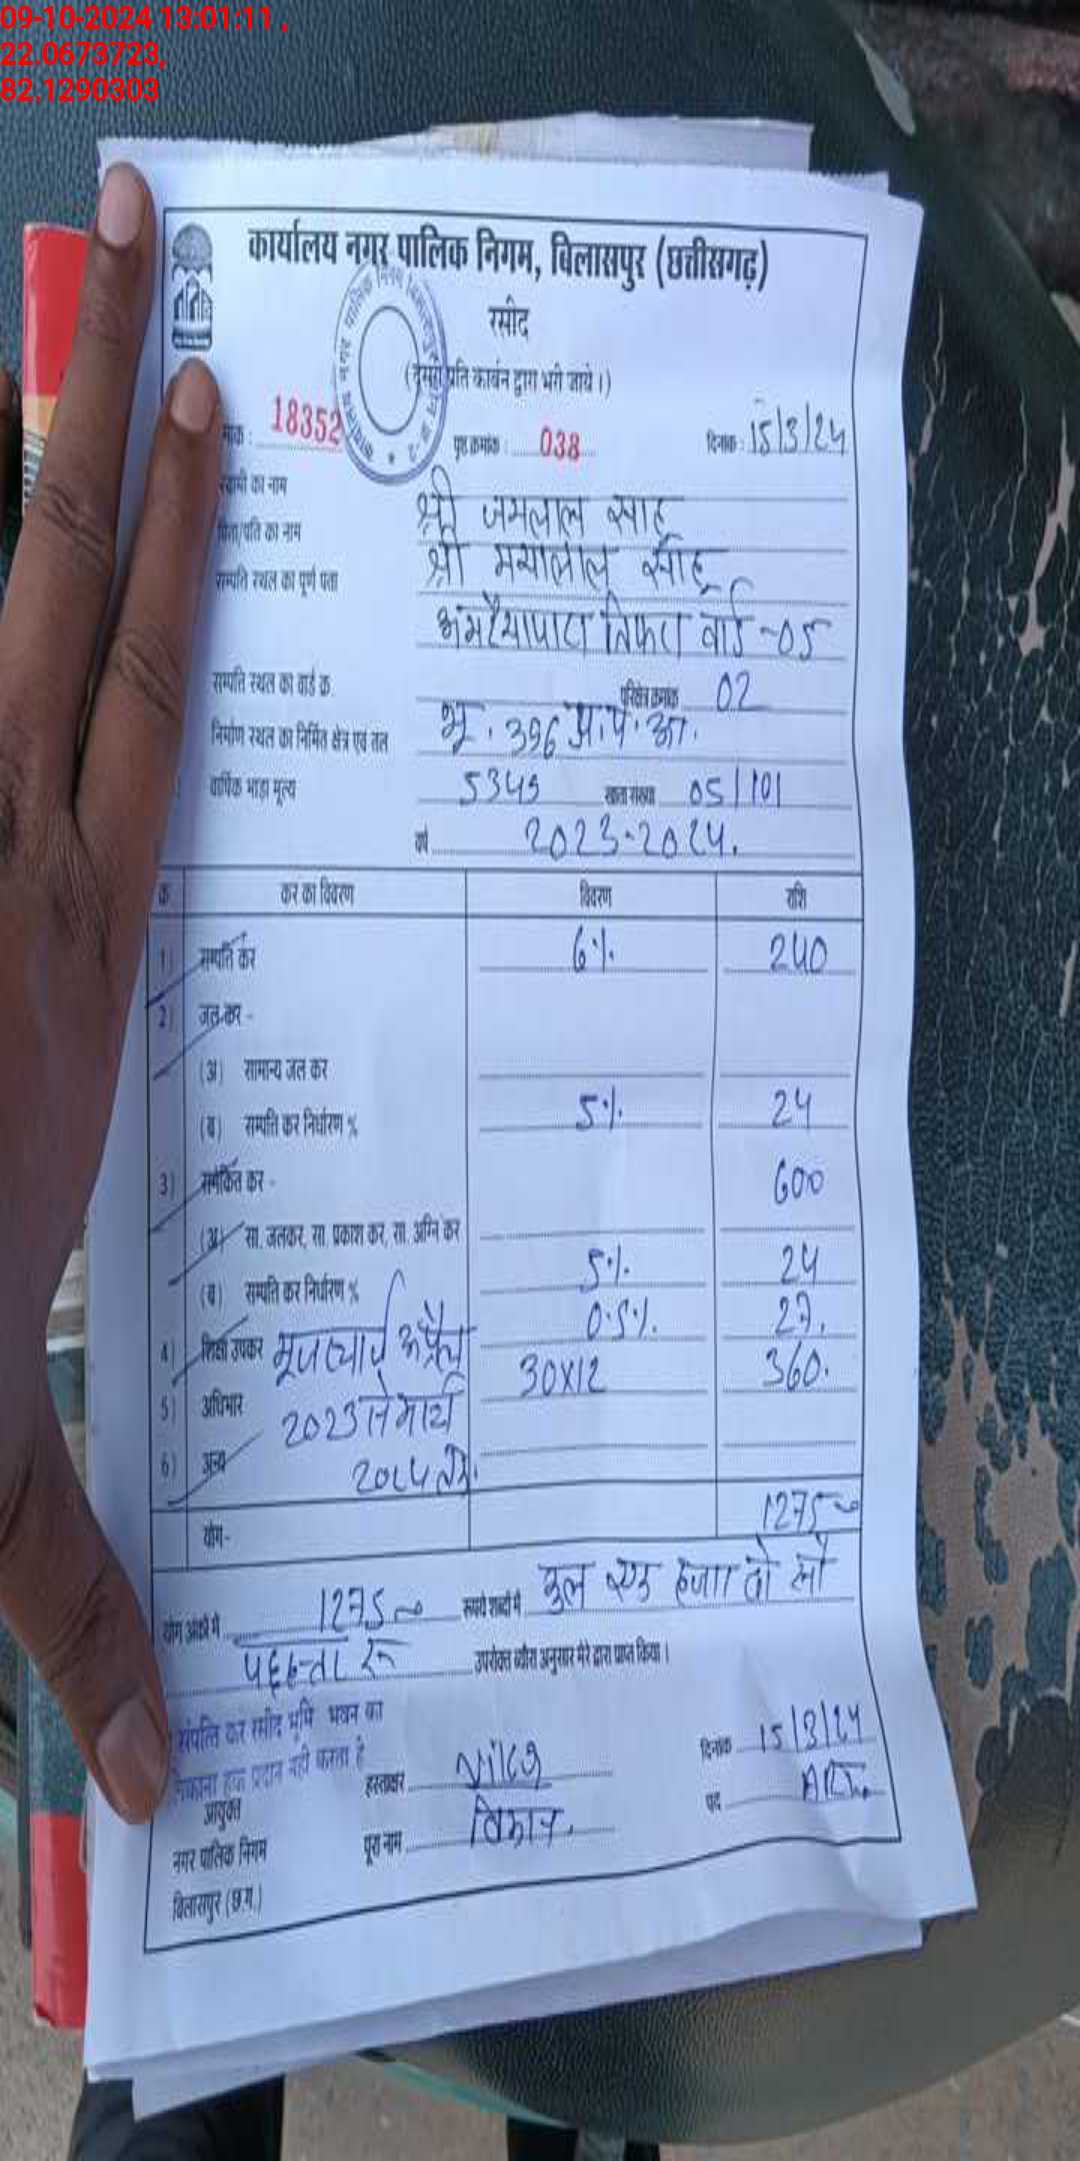 09-10-2024 13:01:11 ,
22.0673723,
82.1290303
कार्यालय नगर पालिक निगम, बिलासपुर (छत्तीसगढ़)
रसीद
(दूसरी प्रति कार्बन द्वारा भरी जाये।)
मांक : 18352 पृष्ठ क्रमांक : 038 दिनांक : 15/3/24
स्वामी का नाम श्री जमलाल साहू
पिता/पति का नाम श्री मयालाल साहू
सम्पति स्थल का पूर्ण पता अमरैयापारा तिफरा वार्ड -05
सम्पति स्थल का वार्ड क्र. परिक्षेत्र क्रमांक 02
निर्माण स्थल का निर्मित क्षेत्र एवं तल भू. 396 प्र.प. आ.
वार्षिक भाड़ा मूल्य 5345 खाता संख्या 05/101
वर्ष 2023-2024.
क्र कर का विवरण विवरण राशि
1) सम्पति कर 6% 240
2) जल कर -
(अ) सामान्य जल कर
(ब) सम्पति कर निर्धारण % 5% 24
3) समेकित कर - 600
(अ) सा. जलकर, सा. प्रकाश कर, सा. अग्नि कर
(ब) सम्पति कर निर्धारण % 5% 24
4) शिक्षा उपकर 0.5% 27.
यूजर चार्ज अप्रैल 30x12 360.
5) अधिभार 2023 से मार्च
6) अन्य 2024 तक.
योग- 1275
योग अंको में 1275 रूपये शब्दों में कुल एक हजार दो सौ
पचहत्तर रू उपरोक्त ब्यौरा अनुसार मेरे द्वारा प्राप्त किया।
संपत्ति कर रसीद भूमि भवन का
हक प्रदान नही करता है
हस्ताक्षर दिनांक 15/3/24
आयुक्त
नगर पालिक निगम पूरा नाम विकास. पद ARI.
बिलासपुर (छ.ग.)